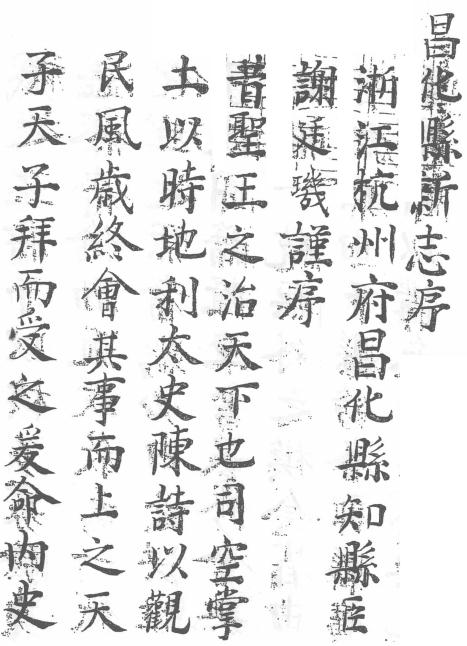 昌化縣新志序
浙江杭州府昌化縣知縣臣
謝廷璣謹序
昔聖王之治天下也司空掌
土以時地利太史陳詩以觀
民風歲終會其事而上之天
子天子拜而受之爰命內史